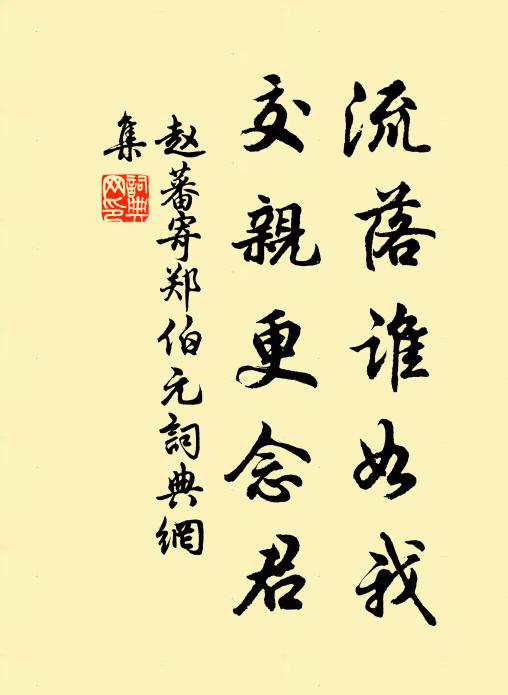 流落谁如我
交親更念君
赵蕃寄郑伯元詞典網
集
詞典網印